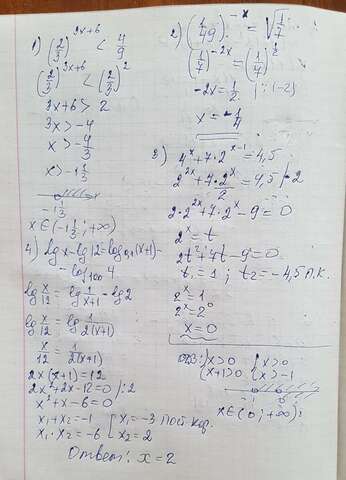 1) (2/3)^{3x+6} < 4/9
(2/3)^{3x+6} < (2/3)^2
3x+6 > 2
3x > -4
x > -4/3
x > -1 1/3
-1 1/3
x
x∈(-1 1/3; +∞)
2) (1/49)^{-x} = √(1/7)
(1/7)^{-2x} = (1/7)^{1/2}
-2x = 1/2 | :(-2)
x = -1/4
3) 4^x + 7·2^{x-1} = 4,5
2^{2x} + 7·2^x/2 = 4,5 |·2
2·2^{2x} + 7·2^x - 9 = 0
2^x = t
2t² + 7t - 9 = 0
t₁ = 1 ; t₂ = -4,5 п.к.
2^x = 1
2^x = 2^0
x = 0
4) lg x - lg 12 = log_{0,1}(x+1) -
- log_{100} 4
lg x/12 = lg 1/(x+1) - lg 2
lg x/12 = lg 1/(2(x+1))
x/12 = 1/(2(x+1))
2x(x+1) = 12
2x² + 2x - 12 = 0 / : 2
x² + x - 6 = 0
x₁ + x₂ = -1
x₁ · x₂ = -6
[x₁ = -3 пост. кор.
x₂ = 2
Ответ: x = 2
ОДЗ: {x > 0
x+1 > 0
{x > 0
x > -1
-1 0
x∈(0; +∞)